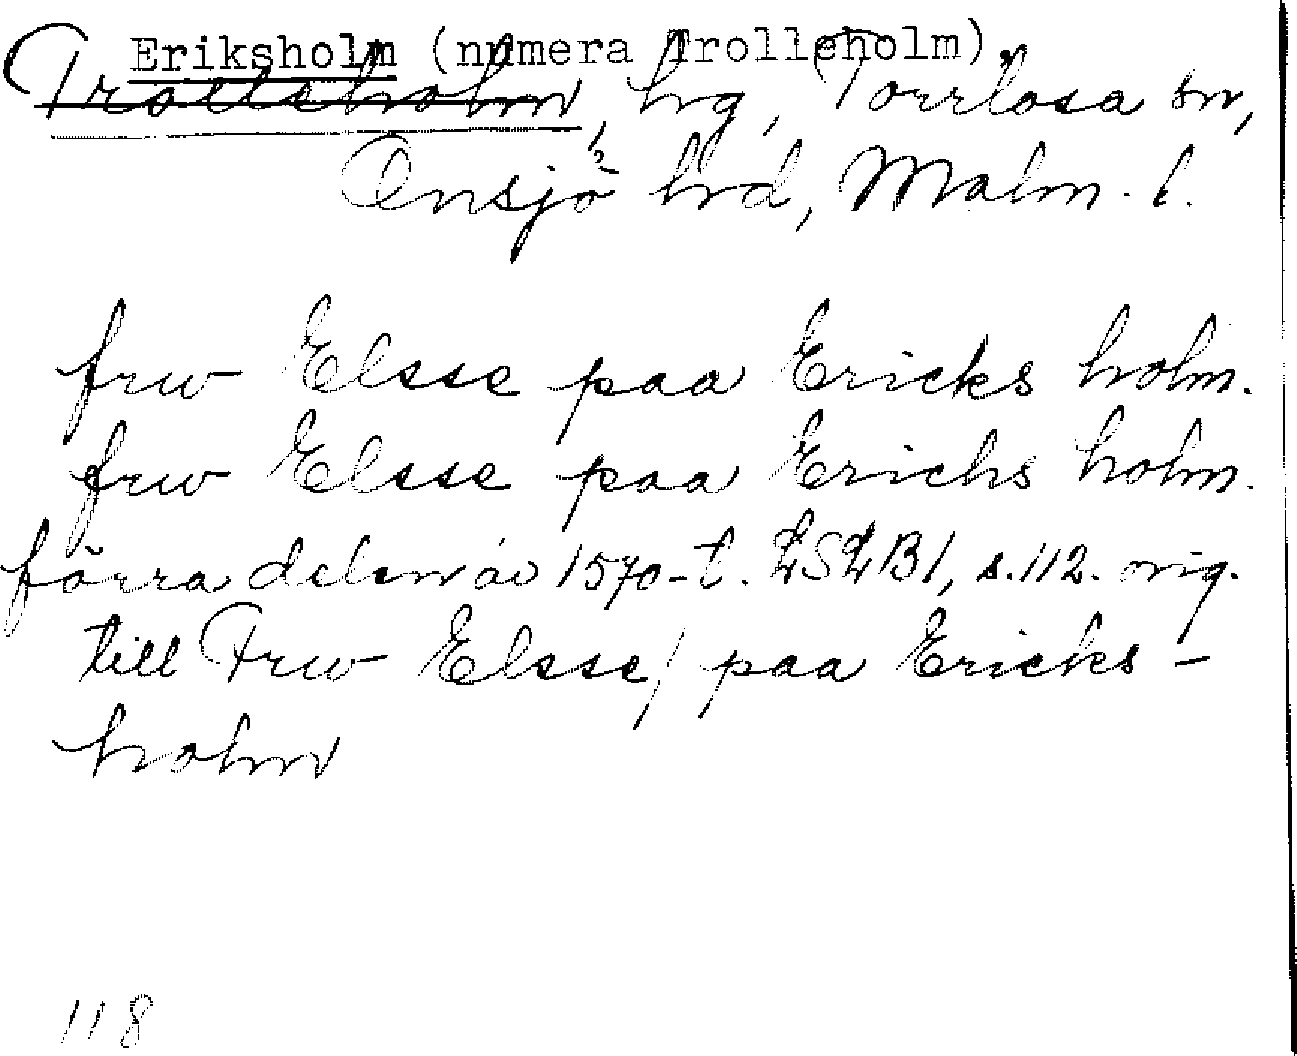 Eriksholm (numera Trolleholm),
Trolleholm, hg, Torrlösa sn,
Onsjö hd, Malm. l.
frw Elsse paa Ericks holm.
frw Elsse paa Erichs holm.
förra delen av 1570-t. LSLB1, s.112. orig.
till Frw Elsse / paa Ericks-
holm
118